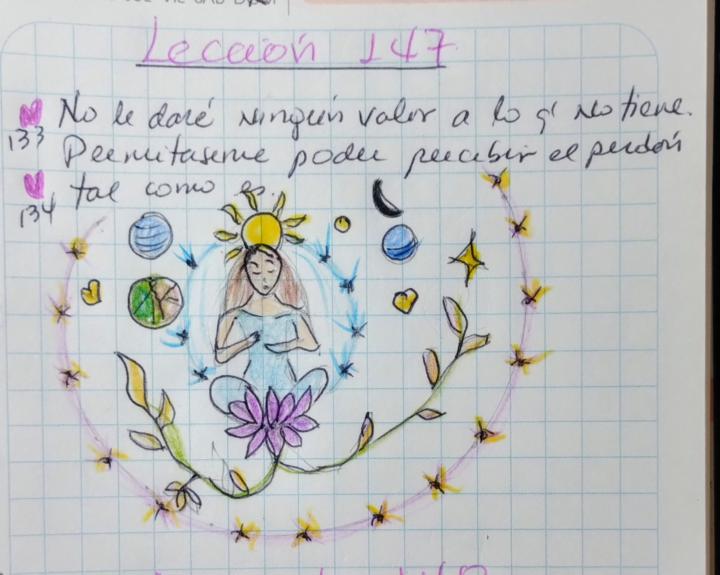 Lección 147
No le daré ningún valor a lo q' no tiene.
133 Permítaseme poder percibir el perdón
134 tal como es.